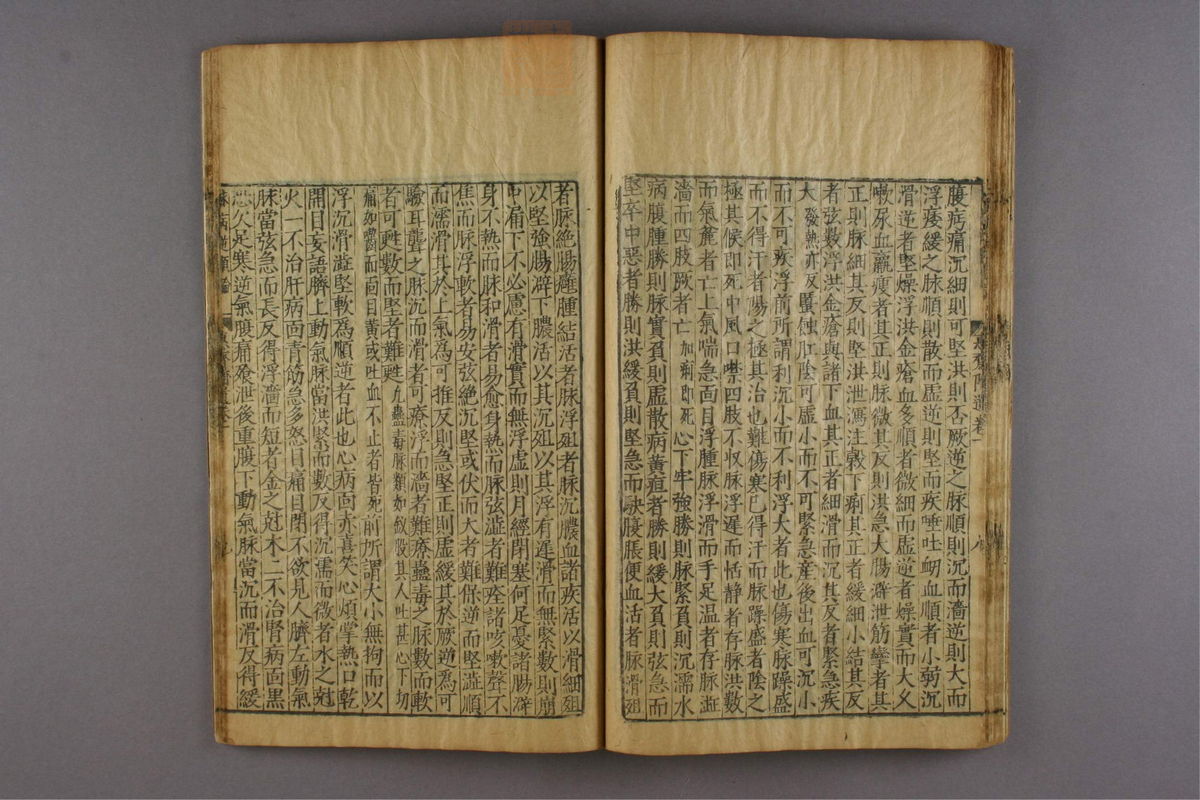 腹病痛沉細則可堅洪則否厥逆之脉順則沉而濇逆則大而
浮痿緩之脉順則散而虛逆則堅而疾唾吐衂血順者小弱沉
滑逆者堅燥浮洪金瘡血多順者微細而虛逆者燥實而大又
嗽尿血羸瘦者其正則脉微其反則洪急大腸澼泄筋攣者其
正則脉細其反則堅洪泄瀉注穀下痢其正者緩細小結其反
者弦數浮洪金瘡與諸下血其正者細滑而沉其反者緊急疾
大發熱亦反䘌蝕肛陰可虛小而不可緊急産後出血可沉小
而不可疾浮前所謂利沉小而不利浮大者此也傷寒脉躁盛
而不得汗者陽之極其治也難傷寒已得汗而脉躁盛者陰之
極其候即死中風口噤四肢不収脉浮遲而恬静者存脉洪數
而氣麄者亡上氣喘急面目浮腫脉浮滑而手足温者存脉澁
濇而四肢厥者亡加痢即死心下牢強勝則脉緊負則沉濡水
病腹腫勝則脉實負則虛散病黃疸者勝則緩大負則弦急而
堅卒中惡者勝則洪緩負則堅急而缺腹脹便血活者脉滑殂
者脉絶腸癰腫結活者脉浮殂者脉沉膿血諸疾活以滑細殂
以堅強腸澼下膿活以其沉殂以其浮有遲滑而無緊數則崩
中痛下不必慮有滑實而無浮虛則月經閉塞何足憂諸腸澼
身不熱而脉和滑者易愈身熱而脉弦澁者難痊諸咳嗽聲不
焦而脉浮軟者易安弦絶沉堅或伏而大者難保逆而堅澁順
而濡滑其於上氣爲可推反則急堅正則虛緩其於厥逆爲可
驗耳聾之脉沉而滑者可療浮而濇者難療蠱毒之脉數而軟
者可甦數而堅者難甦凡蠱毒脉類如釵股其人吐甚心下切
痛如嚙面目黃或吐血不止者皆死前所謂大小無拘而以
浮沉滑澁堅軟爲順逆者此也心病面赤喜笑心煩掌熱口乾
開目妄語臍上動氣脉當洪緊而數反得沉濡而微者水之尅
火一不治肝病面青筋急多怒目痛目閉不欲見人臍左動氣
脉當弦急而長反得浮濇而短者金之尅木二不治腎病面黒
恐久足寒逆氣腹痛飱泄後重臍下動氣脉當沉而滑反得緩